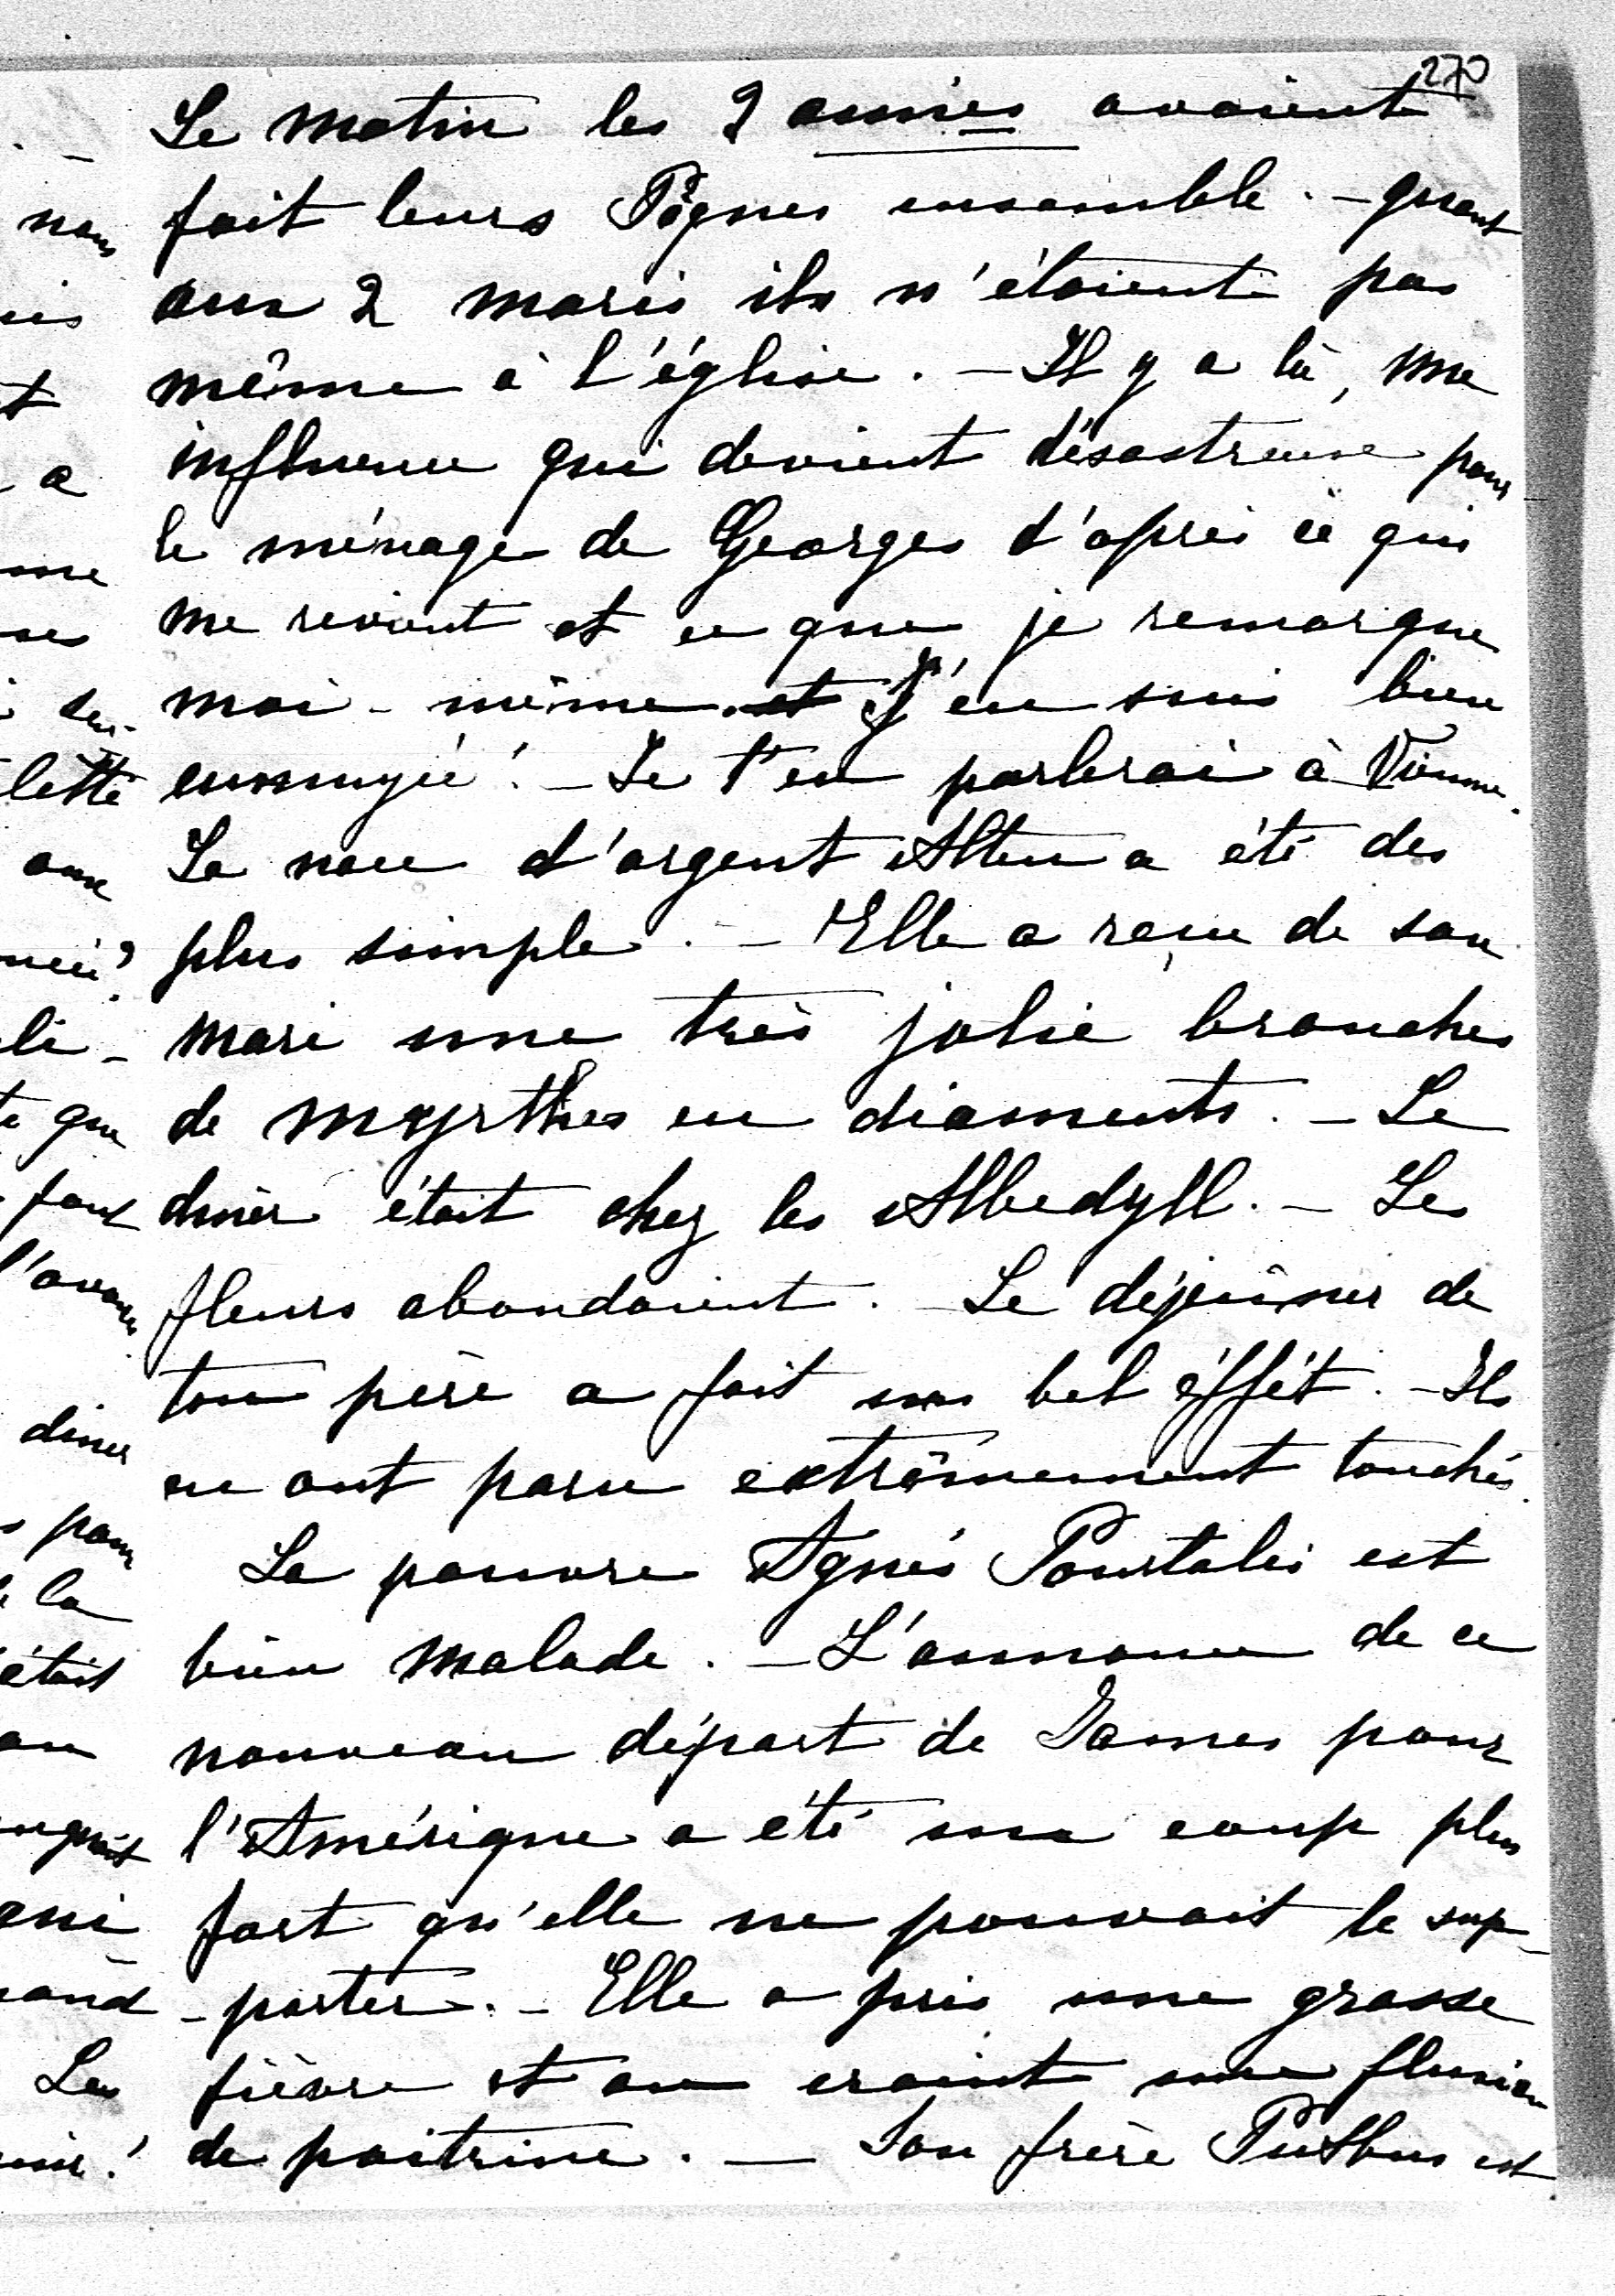 270
Le matin les 2 amies avaient
fait leurs Pâques ensemble. - quant
aux 2 maris ils n'étaient pas
même à l'église. - Il y a là, une
influence qui devient désastreuse pour
le ménage de Georges d'après ce qui
me revient et ce que je remarque
moi-même. et J'en suis bien
ennuyée! - Je t'en parlerai à Vienne.
La noce d'argent Alten a été des
plus simple. - Elle a reçu de son
mari une très jolie branches
de myrthes en diaments. - Le
diner était chez les Albedyll. - Les
fleurs abondaient. Le déjeûner de
ton père a fait un bel éffét. - Ils
en ont paru extrêmement touchés.
La pauvre Agnès Pourtalès est
bien malade. - L'annonce de ce
nouveau départ de James pour
l'Amérique a été un coup plus
fort qu'elle ne pouvait le sup-
-porter. - Elle a pris une grosse
fièvre et on craint une fluxion
de poitrine. - Son frère Putbus est